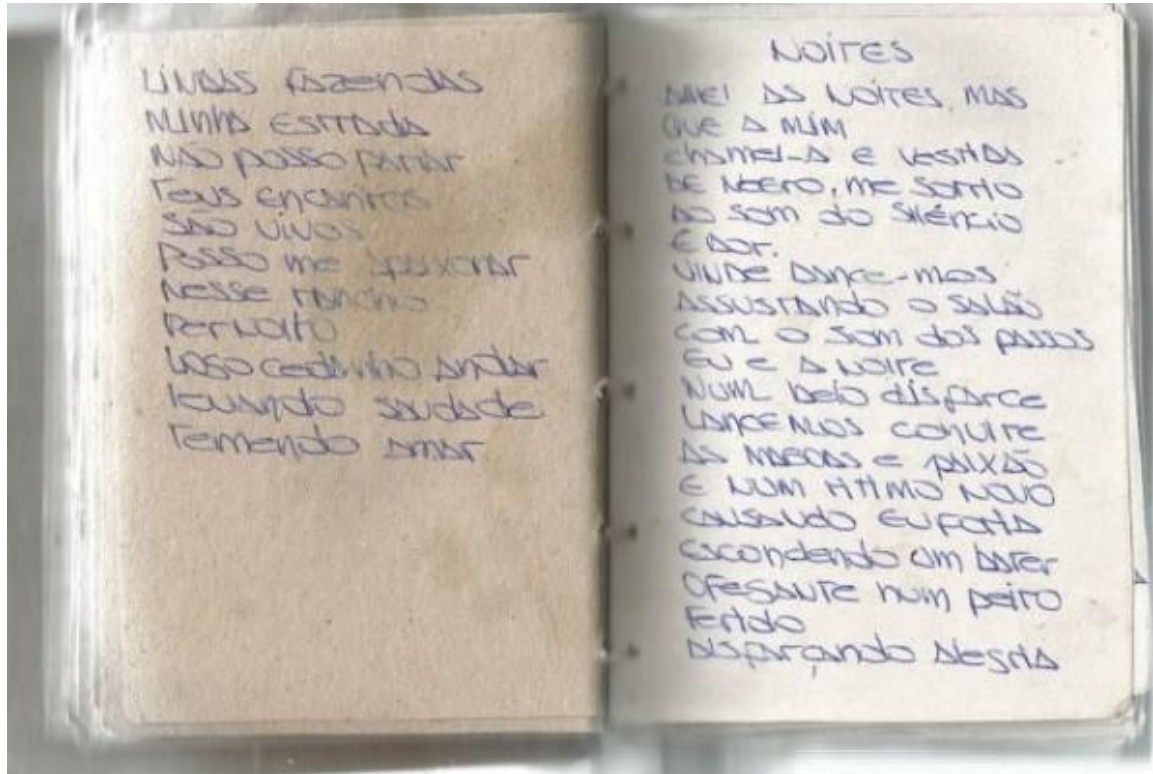 Lindas fazendas
Minha estrada
Não posso parar
Teus encantos
São vivos
Posso me apaixonar
Nesse rancho
Pernoito
Logo cedinho andar
levando saudade
Temendo amar
NOITES
Amei as noites, mas
que a mim
chamei-a e vestida
de negro, me sorrio
ao som do silêncio
e dor.
Vinde dance-mos
Assustando o salão
com o som dos passos
Eu e a noite
Num belo disfarce
Lancemos convite
as mágoas e paixão
E num ritimo novo
causando euforia
escondendo um bater
ofegante num peito
ferido
Disfarçando alegria